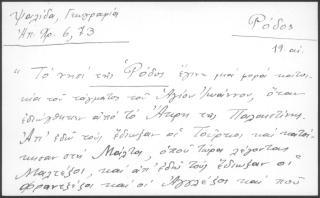 Ψαλίδα, Γεωγραφία
Απ. Χρ. 6, 73
Ρόδος
19 αι.
"Το νησί της Ρόδος έγινε μιά φορά κατοι-
κία του τάγματος του Αγίου Ιωάννου, όταν
εδιώχθηκαν από το Άκρη της Παλαιστίνης.
Απ' εδώ τους έδιωξαν οι Τούρκοι και κατοί-
κησαν στη Μάλτα, οπού τώρα λέγονται
Μαλτέζοι, και απ' εδώ τους έδιωξαν οι
Φραντζέζοι και οι Αγγλέζοι και πού